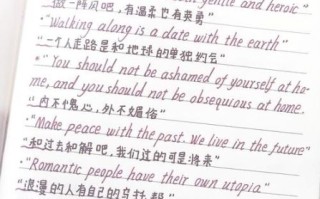 gentle and heroic"
"做一阵风吧，有温柔也有英勇"
"Walking along is a date with the earth"
"一个人走路是和地球的单独约会"
"You should not be ashamed of yourself at ho-
me, and you should not be obsequious at home.
"内不愧心，外不媚俗"
"Make peace with the past. We live in the future"
"和过去和解吧，我们过的可是将来"
"Romantic people have their own utopia"
"浪漫的人有自己的乌托邦"